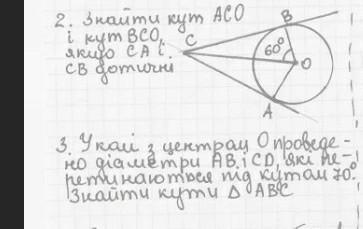 2. Знайти кут ACO
і кут BCO,
якщо CA і
CB дотичні
C
B
60°
O
A
3. У колі з центром O проведе-
но діаметри AB і CD, які пе-
ретинаються під кутом 70°.
Знайти кути Δ ABC